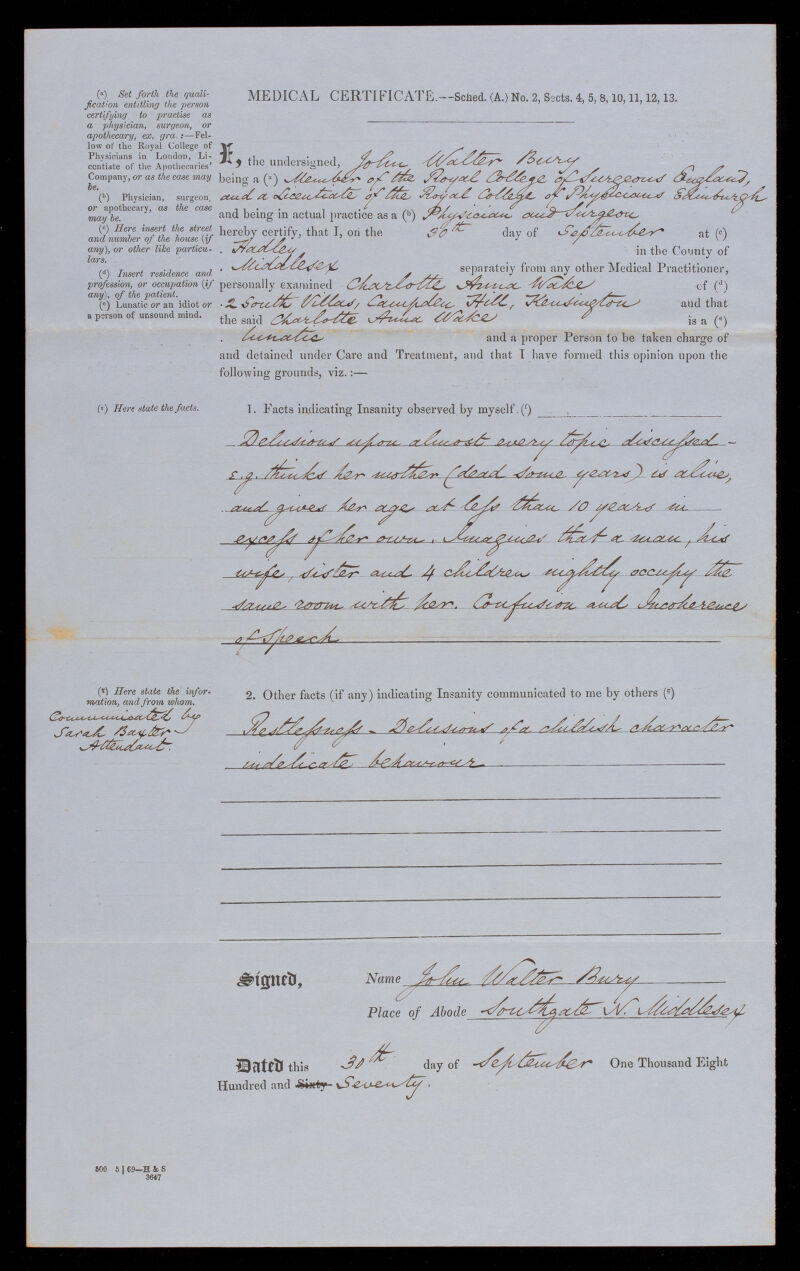 (a) Set forth the quali-
fication entitling the person
certifying to practise as
a physician, surgeon, or
apothecary, ex. gra. :—Fel-
low of the Royal College of
Physicians in London, Li-
centiate of the Apothecaries'
Company, or as the case may
be.
(b) Physician, surgeon,
or apothecary, as the case
may be.
(c) Here insert the street
and number of the house (if
any), or other like particu-
lars.
(d) Insert residence and
profession, or occupation (if
any), of the patient.
(e) Lunatic or an idiot or
a person of unsound mind.
MEDICAL CERTIFICATE.--Sched. (A.) No. 2, Sects. 4, 5, 8, 10, 11, 12, 13.
I, the undersigned, John Walter Bury
being a (a) Member of the Royal College of Surgeons England,
and a Licentiate of the Royal College of Physicians Edinburgh
and being in actual practice as a (b) Physician and Surgeon
hereby certify, that I, on the 30th day of September at (c)
. Hadley in the County of
. Middlesex separately from any other Medical Practitioner,
personally examined Charlotte Anna Wake of (d)
. 2 South Villas, Campden Hill, Kensington and that
the said Charlotte Anna Wake is a (e)
. lunatic and a proper Person to be taken charge of
and detained under Care and Treatment, and that I have formed this opinion upon the
following grounds, viz. :—
(f) Here state the facts.
1. Facts indicating Insanity observed by myself.(f)
Delusions upon almost every topic discussed -
e.g. thinks her mother (dead some years) is alive,
and gives her age at less than 10 years in
excess of her own. Imagines that a man, his
wife, sister and 4 children nightly occupy the
same room with her. Confusion and Incoherence
of Speech
(g) Here state the infor-
mation, and from whom.
Communicated by
Sarah Baxter
Attendant.
2. Other facts (if any) indicating Insanity communicated to me by others (g)
Restlessness - Delusions of a childish character
indelicate behaviour
Signed, Name John Walter Bury
Place of Abode Southgate N. Middlesex
Dated this 30th day of September One Thousand Eight
Hundred and Sixty Seventy.
500 5 | 69—H & S
3647